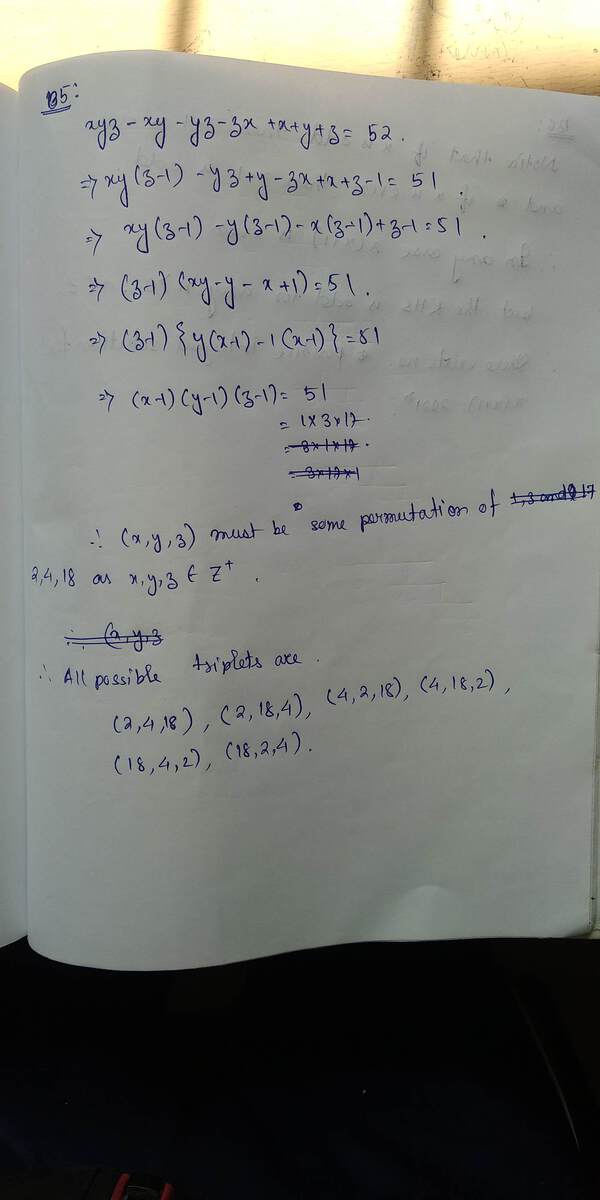 B5:
xyz - xy - yz - zx + x + y + z = 52.
=> xy(z-1) - yz + y - zx + x + z - 1 = 51.
=> xy(z-1) - y(z-1) - x(z-1) + z-1 = 51.
=> (z-1) (xy - y - x + 1) = 51.
=> (z-1) {y(x-1) - 1(x-1)} = 51
=> (x-1) (y-1) (z-1) = 51
= 1 x 3 x 17.
= 3 x 1 x 17.
= 3 x 17 x 1
∴ (x, y, z) must be some permutation of 1, 3 and 17
2, 4, 18 as x, y, z ∈ Z⁺.
∴ (x, y, z
∴ All possible triplets are.
(2, 4, 18), (2, 18, 4), (4, 2, 18), (4, 18, 2),
(18, 4, 2), (18, 2, 4).